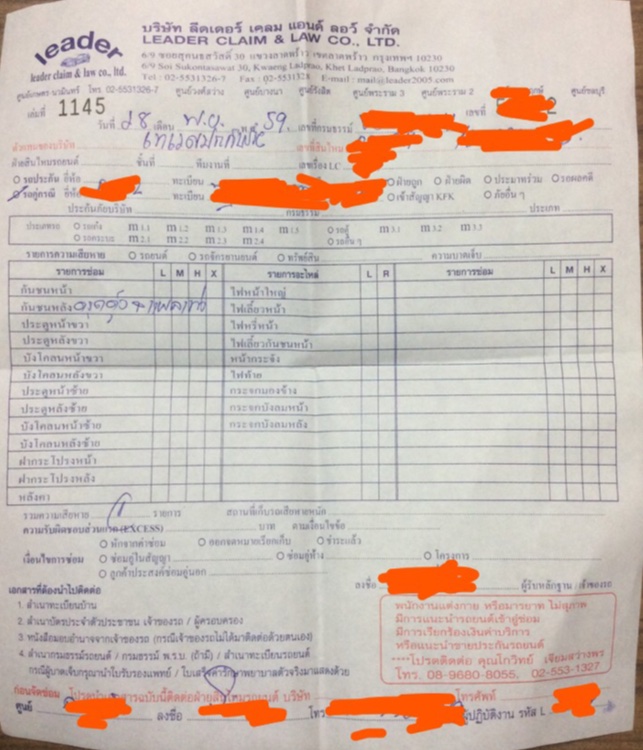 leader
leader claim & law co., ltd.
บริษัท ลีดเดอร์ เคลม แอนด์ ลอว์ จำกัด
LEADER CLAIM & LAW CO., LTD.
6/9 ซอยสุคนธสวัสดิ์ 30 แขวงลาดพร้าว เขตลาดพร้าว กรุงเทพฯ 10230
6/9 Soi Sukontasawat 30, Kwaeng Ladprao, Khet Ladprao, Bangkok 10230
Tel : 02-5531326-7 Fax : 02-553132 E-mail : mail@leader2005.com
ศูนย์เกษตร นวมินทร์ โทร. 02-5531326-7 ศูนย์วงศ์สว่าง ศูนย์บางนา ศูนย์รังสิต ศูนย์พระราม 3 ศูนย์พระราม 2 ศูนย์ชลบุรี
เล่มที่ 1145 เลขที่
วันที่ 28 เดือน พ.ย. 59 เลขที่กรมธรรม์
ตัวแทนของบริษัท เลขที่สินไหม
ฝ่ายสินไหมรถยนต์ ชั้นที่ ทีมงาน เลขเรื่อง LC
รถประกัน ยี่ห้อ ทะเบียน ฝ่ายถูก ฝ่ายผิด ประมาทร่วม รอผลคดี
รถคู่กรณี ยี่ห้อ ทะเบียน เข้าสัญญา KFK ภัยอื่น ๆ
ประกันภัยบริษัท กรมธรรม์ ประเภท
ประเภทรถ รถเก๋ง m 1.1 m 1.2 m 1.3 m 1.4 m 1.5 รถตู้ m 3.1 m 3.2 m 3.3
รถกระบะ m 2.1 m 2.2 m 2.3 m 2.4 รถอื่น ๆ
รายการความเสียหาย รถยนต์ รถจักรยานยนต์ ทรัพย์สิน ความบาดเจ็บ
รายการซ่อม L M H X รายการอะไหล่ L R รายการซ่อม L M H X
กันชนหน้า ไฟหน้าใหญ่
กันชนหลัง ไฟเลี้ยวหน้า
ประตูหน้าขวา ไฟหรี่หน้า
ประตูหลังขวา ไฟเลี้ยวกันชนหน้า
บังโคลนหน้าขวา หน้ากระจัง
บังโคลนหลังขวา ไฟท้าย
ประตูหน้าซ้าย กระจกมองข้าง
ประตูหลังซ้าย กระจกบังลมหน้า
บังโคลนหน้าซ้าย กระจกบังลมหลัง
บังโคลนหลังซ้าย
ฝากระโปรงหน้า
ฝากระโปรงหลัง
หลังคา
รวมความเสียหาย รายการ สถานที่เก็บรถเสียหายหนัก
ความรับผิดชอบส่วนแรก (EXCESS) บาท ตามเงื่อนไขข้อ
หักจากค่าซ่อม ออกจดหมายเรียกเก็บ ชำระแล้ว
เงื่อนไขการซ่อม ซ่อมอู่ในสัญญา ซ่อมอู่ห้าง โครงการ
ลูกค้าประสงค์ซ่อมอู่นอก
ลงชื่อ ผู้รับหลักฐาน / เจ้าของรถ
เอกสารที่ต้องนำไปติดต่อ
1. สำเนาทะเบียนบ้าน
2. สำเนาบัตรประจำตัวประชาชน เจ้าของรถ / ผู้ครอบครอง
3. หนังสือมอบอำนาจจากเจ้าของรถ (กรณีเจ้าของรถไม่ได้มาติดต่อด้วยตนเอง)
4. สำเนากรมธรรม์รถยนต์ / กรมธรรม์ พ.ร.บ. (ถ้ามี) / สำเนาทะเบียนรถยนต์
กรณีผู้บาดเจ็บกรุณานำใบรับรองแพทย์ / ใบเสร็จค่ารักษาพยาบาลตัวจริงมาแสดงด้วย
พนักงานแต่งกาย หรือมารยาท ไม่สุภาพ
มีการแนะนำรถยนต์เข้าอู่ซ่อม
มีการเรียกร้องเงินค่าบริการ
หรือแนะนำขายประกันรถยนต์
****โปรดติดต่อ คุณโกวิทย์ เจียมสว่างพร
โทร. 08-9680-8055, 02-553-1327
ก่อนจัดซ่อม โปรดนำเอกสารฉบับนี้ติดต่อฝ่ายสินไหมรถยนต์ บริษัท โทรศัพท์
ศูนย์ ลงชื่อ โทร ผู้ปฏิบัติงาน รหัส L